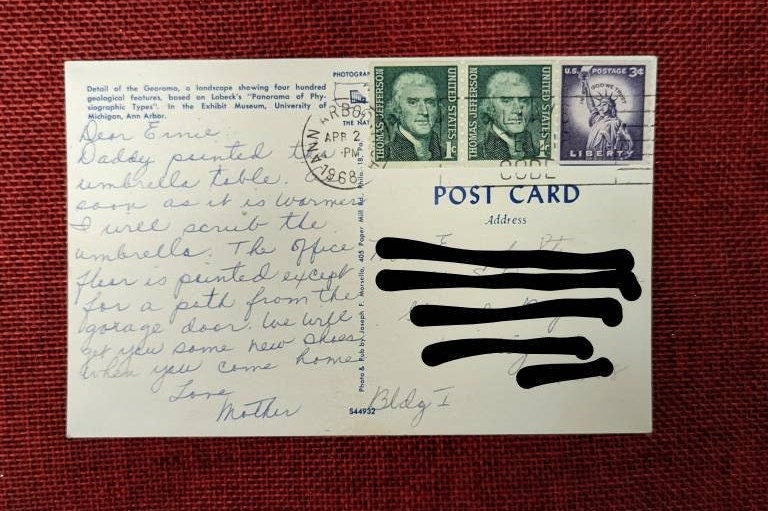 Detail of the Georama, a landscape showing four hundred
geological features, based on Lobeck's "Panorama of Phy-
siographic Types". In the Exhibit Museum, University of
Michigan, Ann Arbor.
Dear Ernie
Daddy painted the
umbrella table.
soon as it is warmer
I will scrub the
umbrella. The office
floor is painted except
for a path from the
garage door. We will
get you some new shoes
when you come home
Love
Mother
PHOTOGRA
THE NAT
ANN ARBO
APR 2
PM
1968
THOMAS JEFFERSON
UNITED STATES
1c
THOMAS JEFFERSON
UNITED STATES
U.S. POSTAGE 3¢
IN GOD WE TRUST
LIBERTY
CODE
POST CARD
Address
Bldg I
Photo & Pub by Joseph F. Morsello, 405 Paper Mill Rd. Phila. 18, Pa
S44932